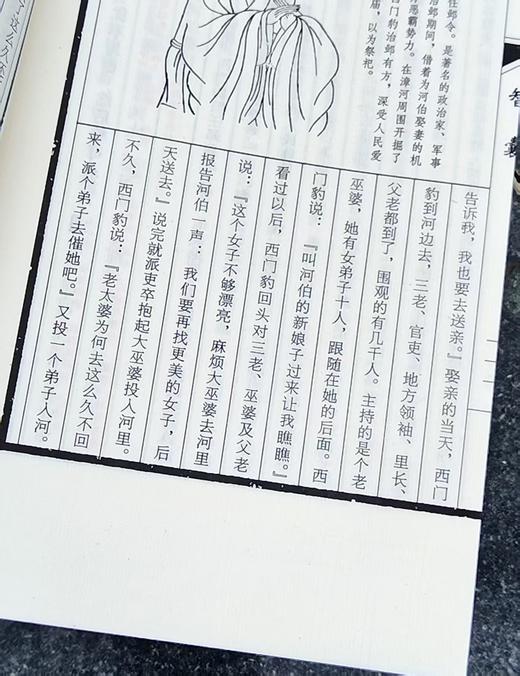 智囊
任邺令。是著名的政治家、军事
治邺期间，借着为河伯娶妻的机
恶霸势力。在漳河周围开掘了
西门豹治邺有方，深受人民爱
庙，以为祭祀。
告诉我，我也要去送亲。』娶亲的当天，西门
豹到河边去，三老、官吏、地方领袖、里长、
父老都到了，围观的有几千人。主持的是个老
巫婆，她有女弟子十人，跟随在她的后面。西
门豹说：『叫河伯的新娘子过来让我瞧瞧。』
看过以后，西门豹回头对三老、巫婆及父老
说：『这个女子不够漂亮，麻烦大巫婆去河里
报告河伯一声：我们要再找更美的女子，后
天送去。』说完就派吏卒抱起大巫婆投入河里。
不久，西门豹说：『老太婆为何去这么久不回
来，派个弟子去催她吧。』又投一个弟子入河。